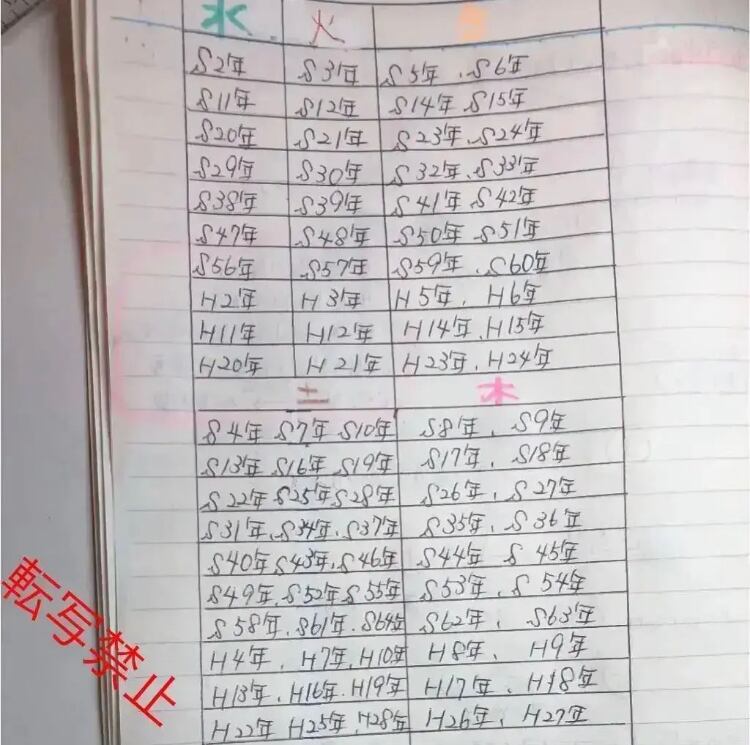 水 火 金
S2年 S3年 S5年、S6年
S11年 S12年 S14年、S15年
S20年 S21年 S23年、S24年
S29年 S30年 S32年、S33年
S38年 S39年 S41年、S42年
S47年 S48年 S50年 S51年
S56年 S57年 S59年、S60年
H2年 H3年 H5年、H6年
H11年 H12年 H14年、H15年
H20年 H21年 H23年、H24年
土 木
S4年 S7年 S10年 S8年、S9年
S13年 S16年 S19年 S17年、S18年
S22年 S25年 S28年 S26年、S27年
S31年、S34年、S37年 S35年、S36年
S40年 S43年、S46年 S44年 S45年
S49年、S52年 S55年 S53年、S54年
S58年、S61年、S64年 S62年、S63年
H4年、H7年、H10年 H8年、H9年
H13年、H16年、H19年 H17年、H18年
H22年 H25年、H28年 H26年、H27年
転写禁止